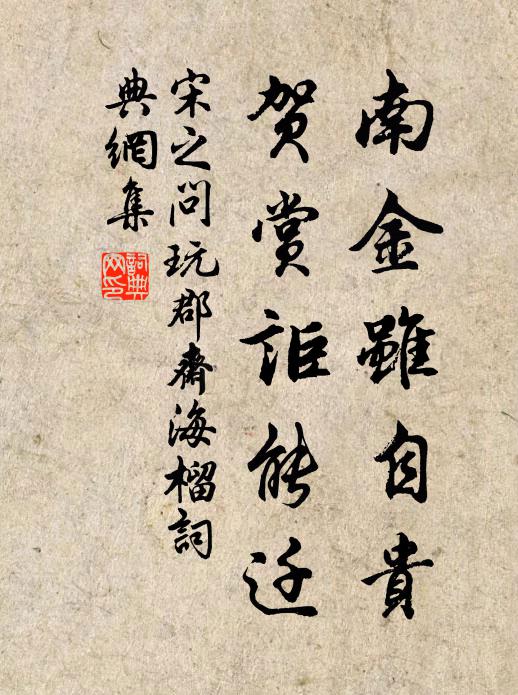 南金雖自貴
賀賞詎能迁
宋之问玩郡斋海榴詞
典網集
詞典网印